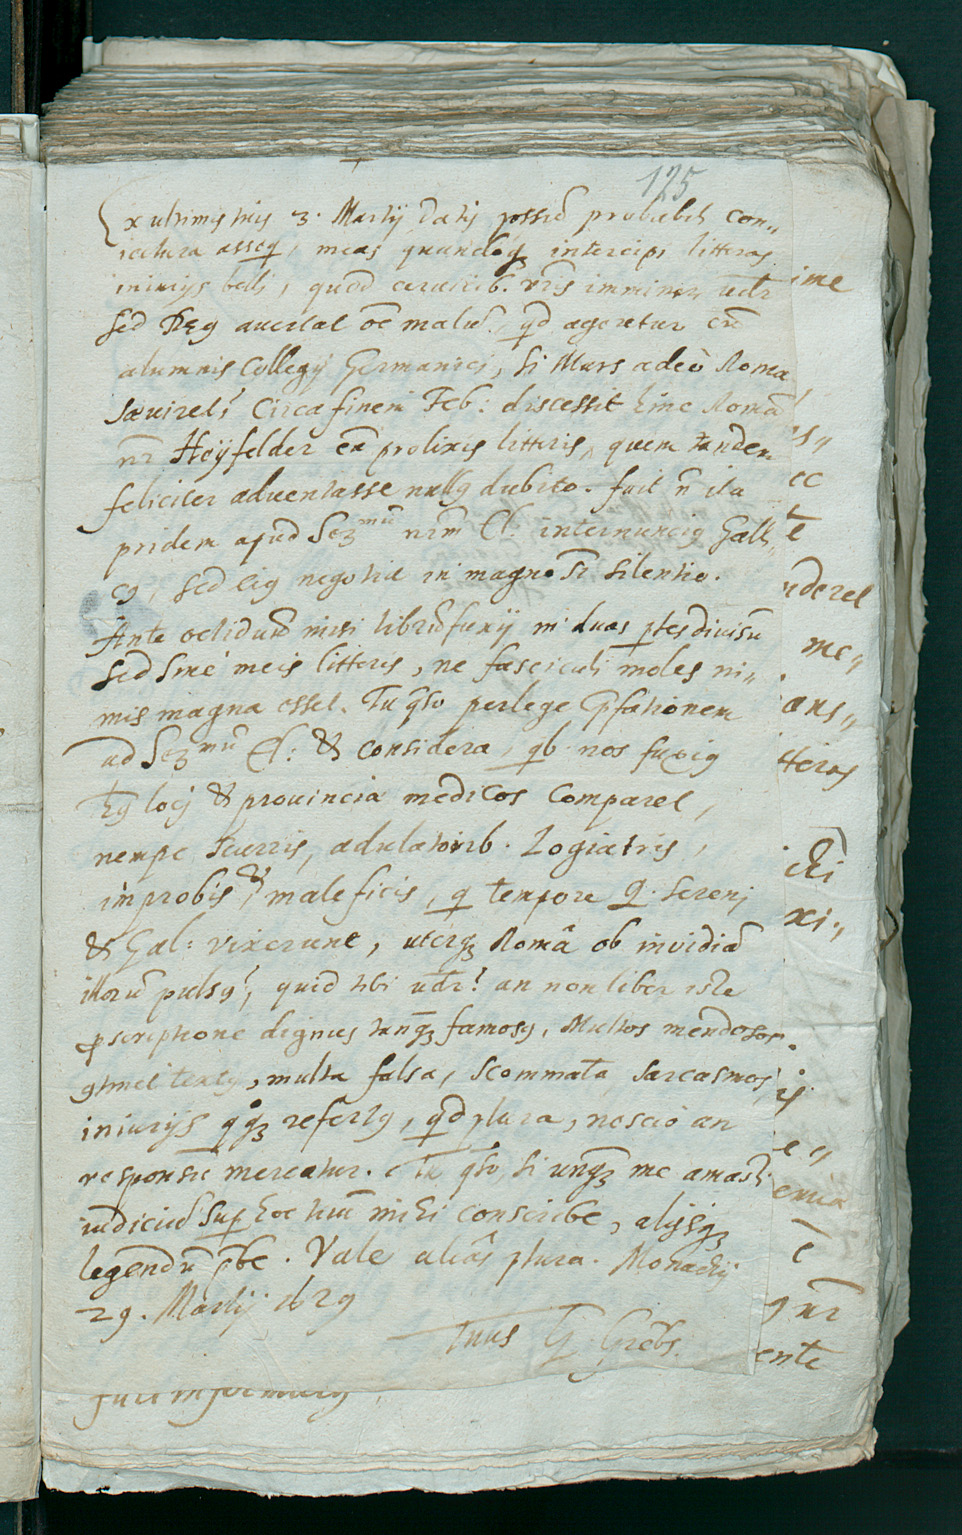 125
Ex ultimis tuis 3. Martij datis possū probabili con„
iectura asseq, meas quandoq; intercipi litteras
iniurijs belli, quod ceruicib. vris imminere vidr
sed De9 auertat oē malū, qd ageretur cū
alumnis Collegij Germanici, si Mars adeò Romā
sæuiret? Circa finem Feb: discessit hinc Romā
nr Heÿfelder cū prolixis litteris, quem tandem
feliciter aduentasse null9 dubito. fuit n ita
pridem apud Ser^mū nrm El: internunci9 Galli„
c9, sed ei9 negotiū in magno st silentio.
Ante octiduū misi librū fuxij in duas ptes diuisū
sed sine meis litteris, ne fasciculi moles ni„
mis magna esset. Tu qso perlege Præfationem
ad Ser^mū El: & considera, qb nos fuxi9
h9 locj & prouincia medicos comparet,
nempe scurris, adulatorib. Logiatris,
improbis & maleficis, q tempore Q. Serenj
& Gal: vixerunt, uterq; Româ ob inuidiā
illorū puls9, quid tibi vidr? an non liber iste
pscriptione dignus tanq; famos9, Multos mendosos
9tinet text9, multa falsa, scommata, sarcasmos,
iniurijs qq; refert9, qd plura, nescio an
responsū mereatur. Tu qso, si unq; me amasti
iudiciū sup hoc tuū mihi conscribe, alijsq;
legendū pbe. Vale aliâs plura. Monachij
29. Martij 1629
Tuus G Grebs.
ime
es„
ec
te
nderet
me„
ans„
tteras
ichi
xi„
ij
e„
emia
e
9 nr
ente